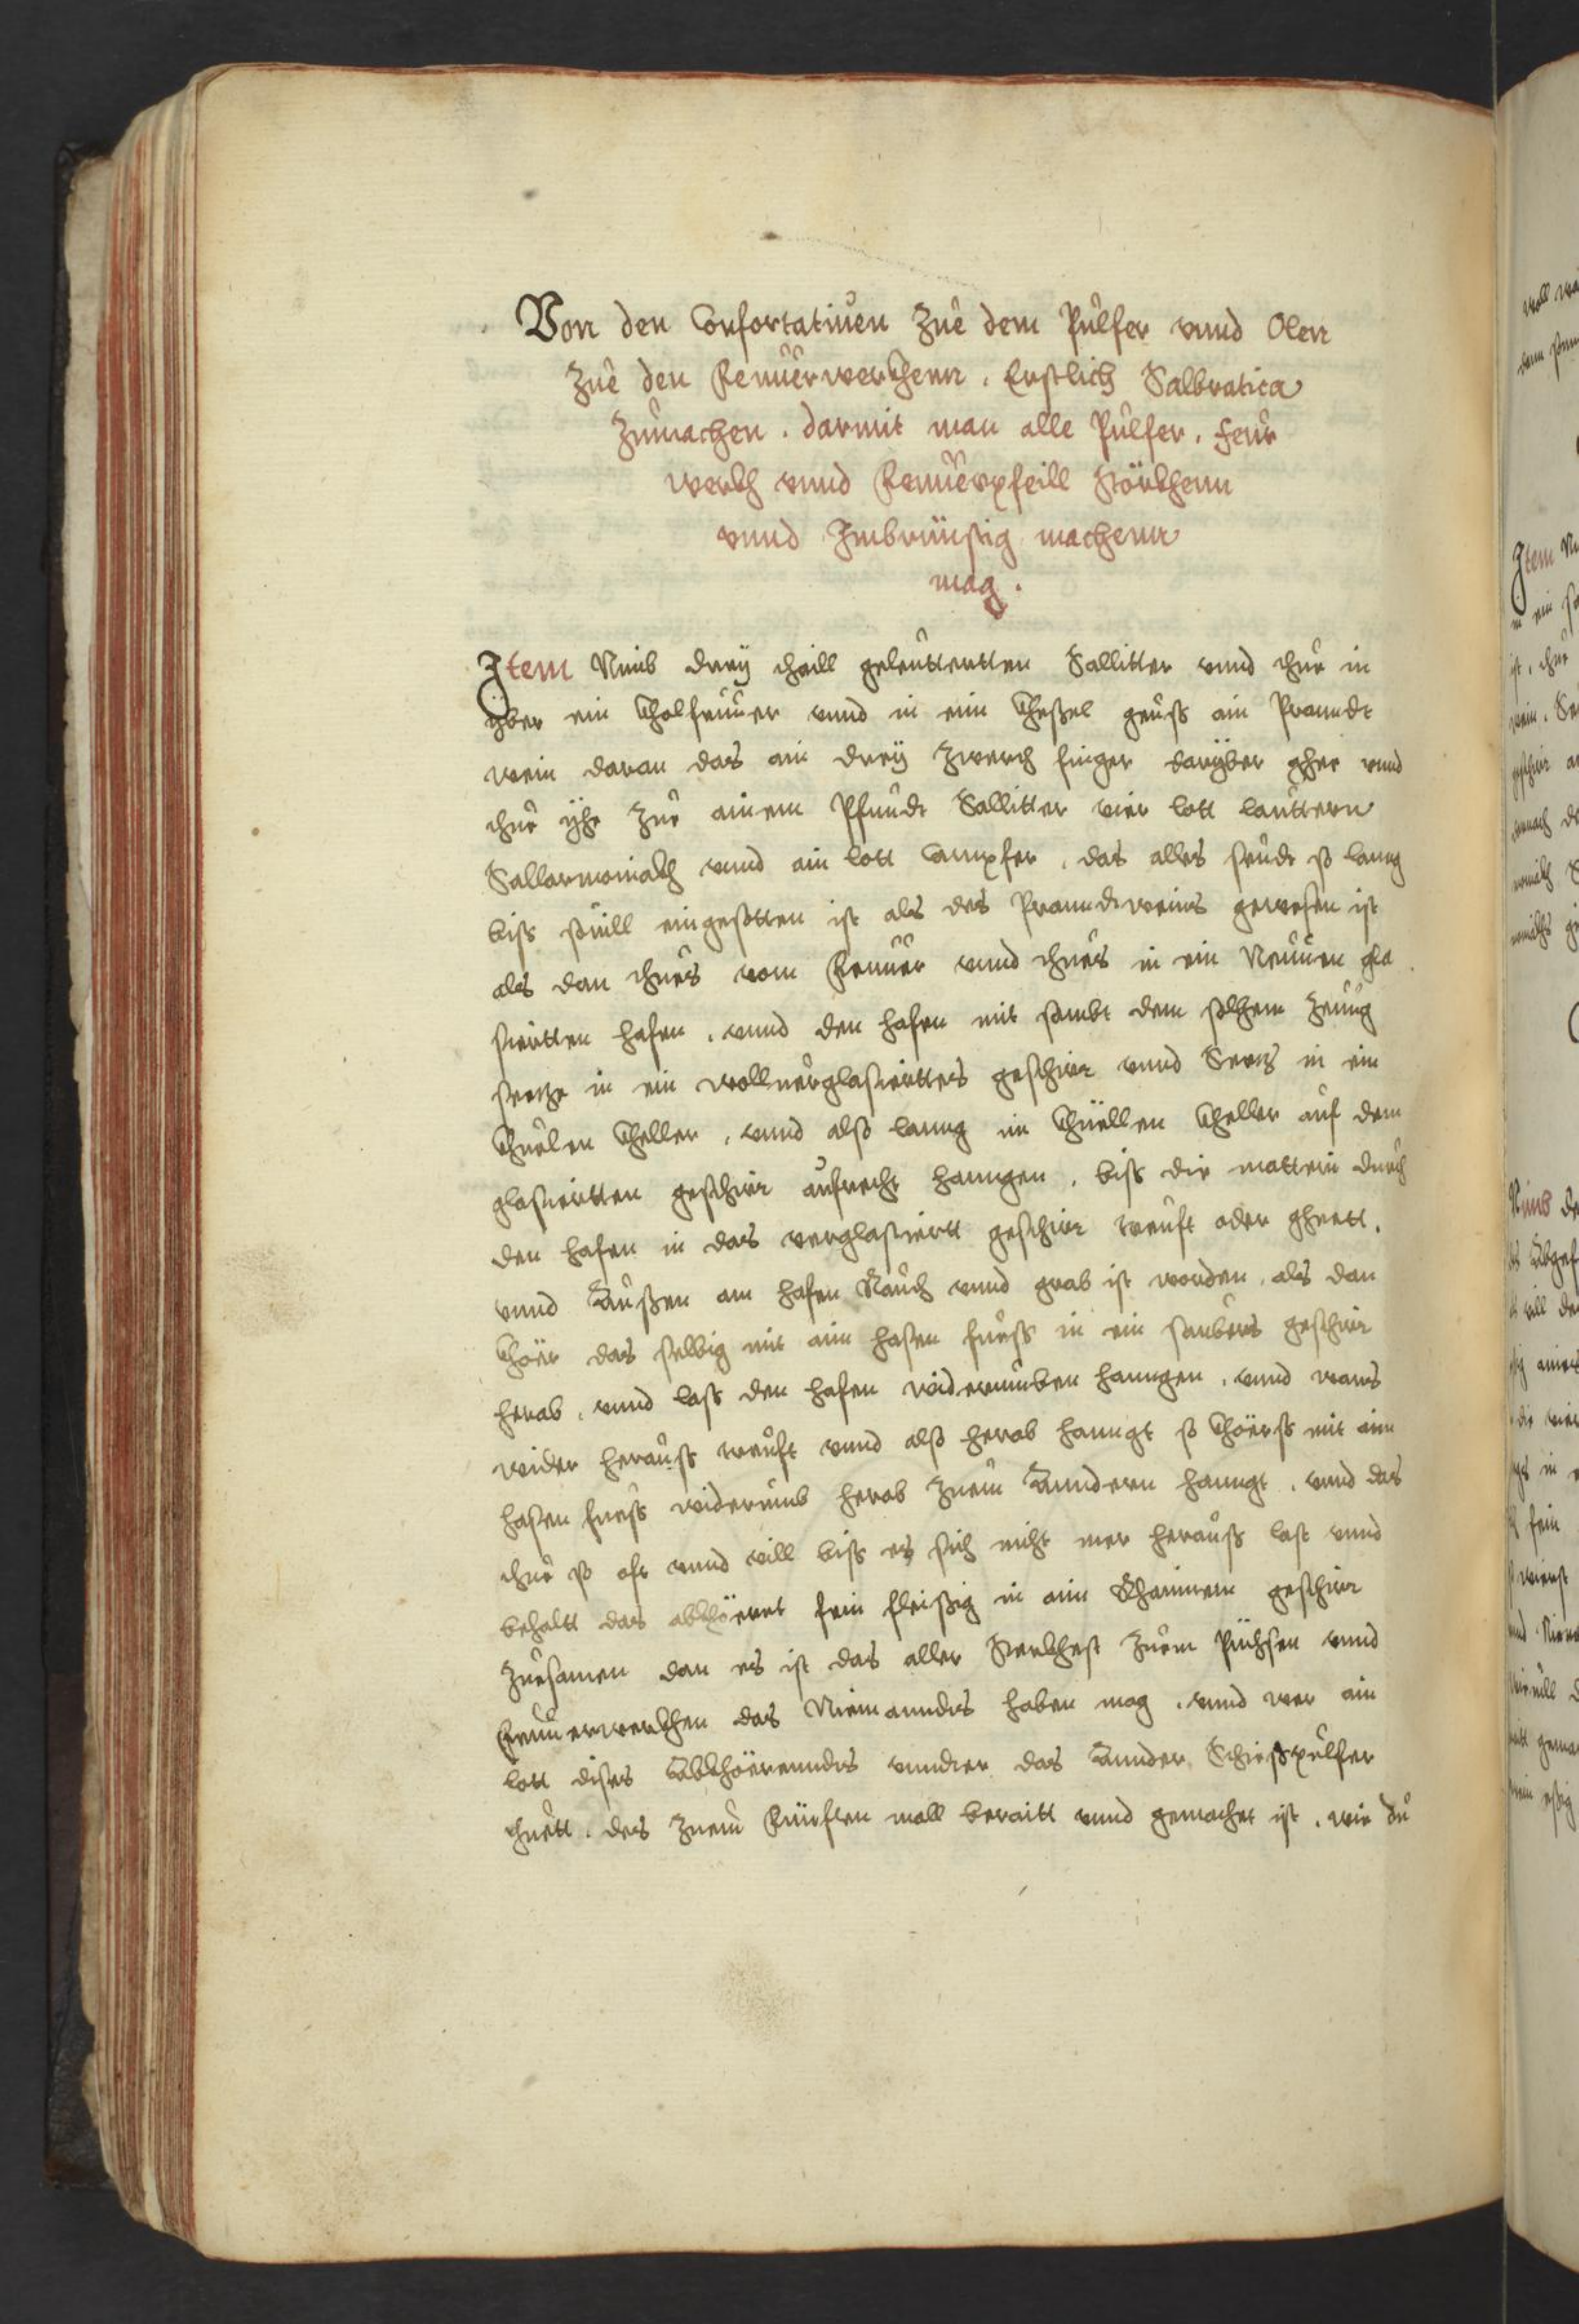 Von den Confortatiuen Zue dem Pulfer vnnd Olen
Zue den Feuuerwerckhenn . Erstlich Salbratica
Zumachen . darmit man alle Pulfer . feur
werkh vnnd Feuuerpfeill störkhenn
vnnd Inbrünstig machenn
mag .
Item Nimb dreÿ thaill geleutterten Sallitter vnnd thue in
ÿber ein kholfeuuer vnnd in ein khessel geuss ain Prannndt
wein daran das ain dreÿ zwerch finger darÿber gehe vnnd
thue ÿhe zue ainem Pfundt Sallitter vier lott lautteren
Sallarmoniakh vnnd ain lott Campfer . das alles seudt so lanng
biss souill eingesotten ist als des Pranndtweins gewesen ist
als dan thues vom Feuuer vnnd thues in ein Neuuen gla
sierten hafen . vnnd den hafen mit sambt dem solhem Zeuug
setze in ein woll verglasiertters geschirr vnnd Setz in ein
khuelen kheller , vnnd also lanng im khüellen kheller auf dem
glasiertten geschirr aufrecht hanngen . biss die matteri durch
den hafen in das verglasiertt geschirr treuft oder gheett .
vnnd Aussen am hafen Rauch vnnd grab ist worden . als dan
khör das selbig mit aim hasen fuess in ein saubers geschirr
herab . vnnd lass den hafen widerumben hanngen . vnnd wans
wider herauss treuft vnnd also herab hanngt so khörss mit aim
hasen fuess widerumb herab zuem Anndern hanngt . vnnd das
thue so oft vnnd vill biss es sich nicht mer herauss last vnnd
behaltt das abkhöeret fein fleissig in aim Khainem geschirr
zuesamen dan es ist das aller Sterkhest zuem Püchsen vnnd
Feuuerwerkhen das Niemanndts haben mag . vnnd wer ain
lott dises Abkhöerenndts vnndter das Annder Schiesspulfer
thuett . des zuem Fünften mall beraitt vnnd gemachet ist . wie du